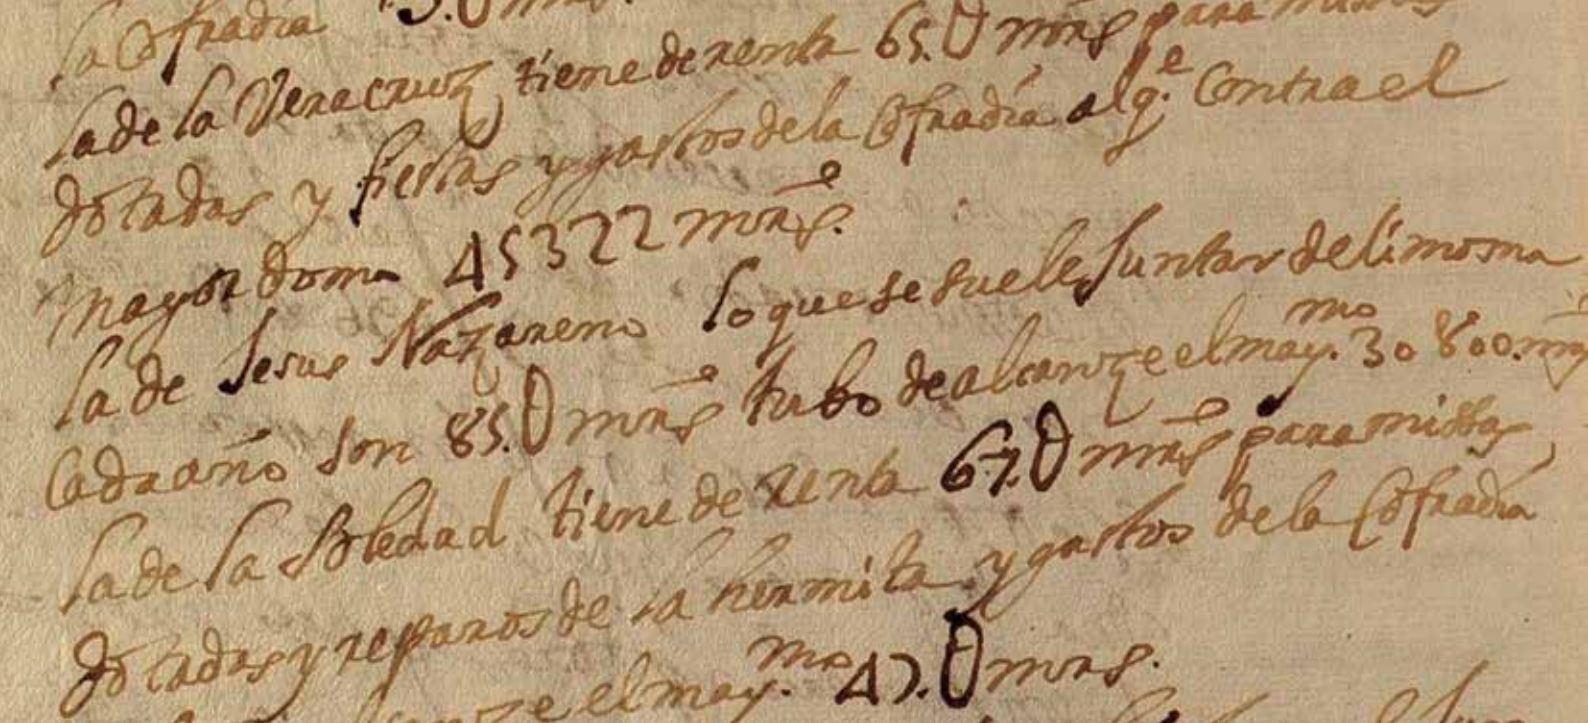 la Cofradia
la de la Veracruz tiene de renta 65.0 mrs para misas
dotadas y fiestas y gastos de la Cofradia alg.e Contra el
mayordomo 45322 mrs.
la de Jesus Nazareno lo que se suele Juntar de limosna
Cada año son 85.0 mrs tubo de alcanze el may.mo 30800. mrs
la de la Soledad tiene de renta 67.0 mrs para missas
dotadas y reparos de la hermita y gastos de la Cofradia
el may.mo 47.0 mrs.